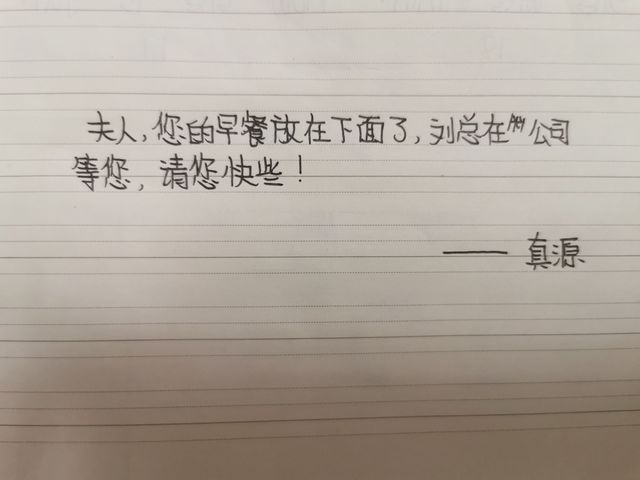 夫人，您的早餐放在下面了，刘总在公司
等您，请您快些！
—— 真源